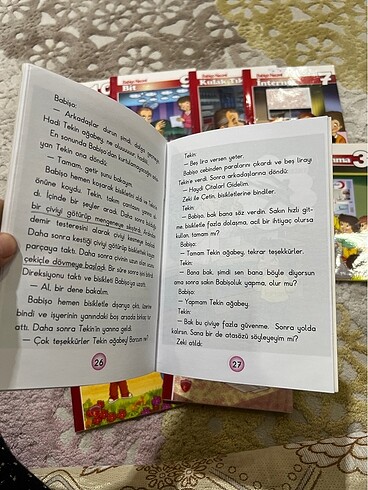 Bit
Kulak Tık
İnternet
7
3
Babişo:
— Arkadaşlar durun şimdi, duğa
Hadi Tekin ağabey, ne olursun,
yan Tekin ona döndü:
— Tamam, getir şunu bakayım.
Babişo hemen koşarak bisikleti aldı ve Tekin'in
önüne koydu. Tekin, takım çantasını
dı. İçinde bir şeyler aradı. Daha sonra
bir çiviyi götürüp mengeneye
demir testeresini alarak çiviyi kesmeye
Daha sonra kestiği çiviyi götürüp bisikletin
parçaya taktı. Daha sonra çivinin uzun olan
çekiçle dövmeye başladı. Bir süre sonra işini
Direksiyonu taktı ve bisikleti Babişo'ya uzattı.
— AL bir dene bakalım.
Babişo hemen bisikletle dışarıya çıktı, üzerine
bindi ve işyerinin yanındaki boş arsada birkaç tur
attı. Daha sonra Tekin'in yanına geldi.
— Çok teşekkürler Tekin ağabey! Borcum ne?
26
Tekin:
— Beş lira versen yeter.
Babişo cebinden paralarını çıkardı ve beş lirayı
Tekin'e verdi. Sonra arkadaşlarına döndü:
— Haydi Çıtalar! Gidelim.
Zeki ile Çetin, bisikletlerine bindiler.
Tekin:
— Babişo, bak bana söz verdin. Sakın hızlı git-
me, bisikletle fazla dolaşma, acil bir ihtiyaç olursa
kullan, tamam mı?
Babişo:
— Tamam Tekin ağabey, tekrar teşekkürler.
Tekin:
— Bana bak, şimdi sen bana böyle diyorsun
ama sonra sakın Babişoluk yapma, olur mu?
Babişo:
— Yapmam Tekin ağabey.
Tekin:
— Bak bu çiviye fazla güvenme. Sonra yolda
kalırsın. Sana bir de atasözü söyleyeyim mi?
Zeki atıldı:
27